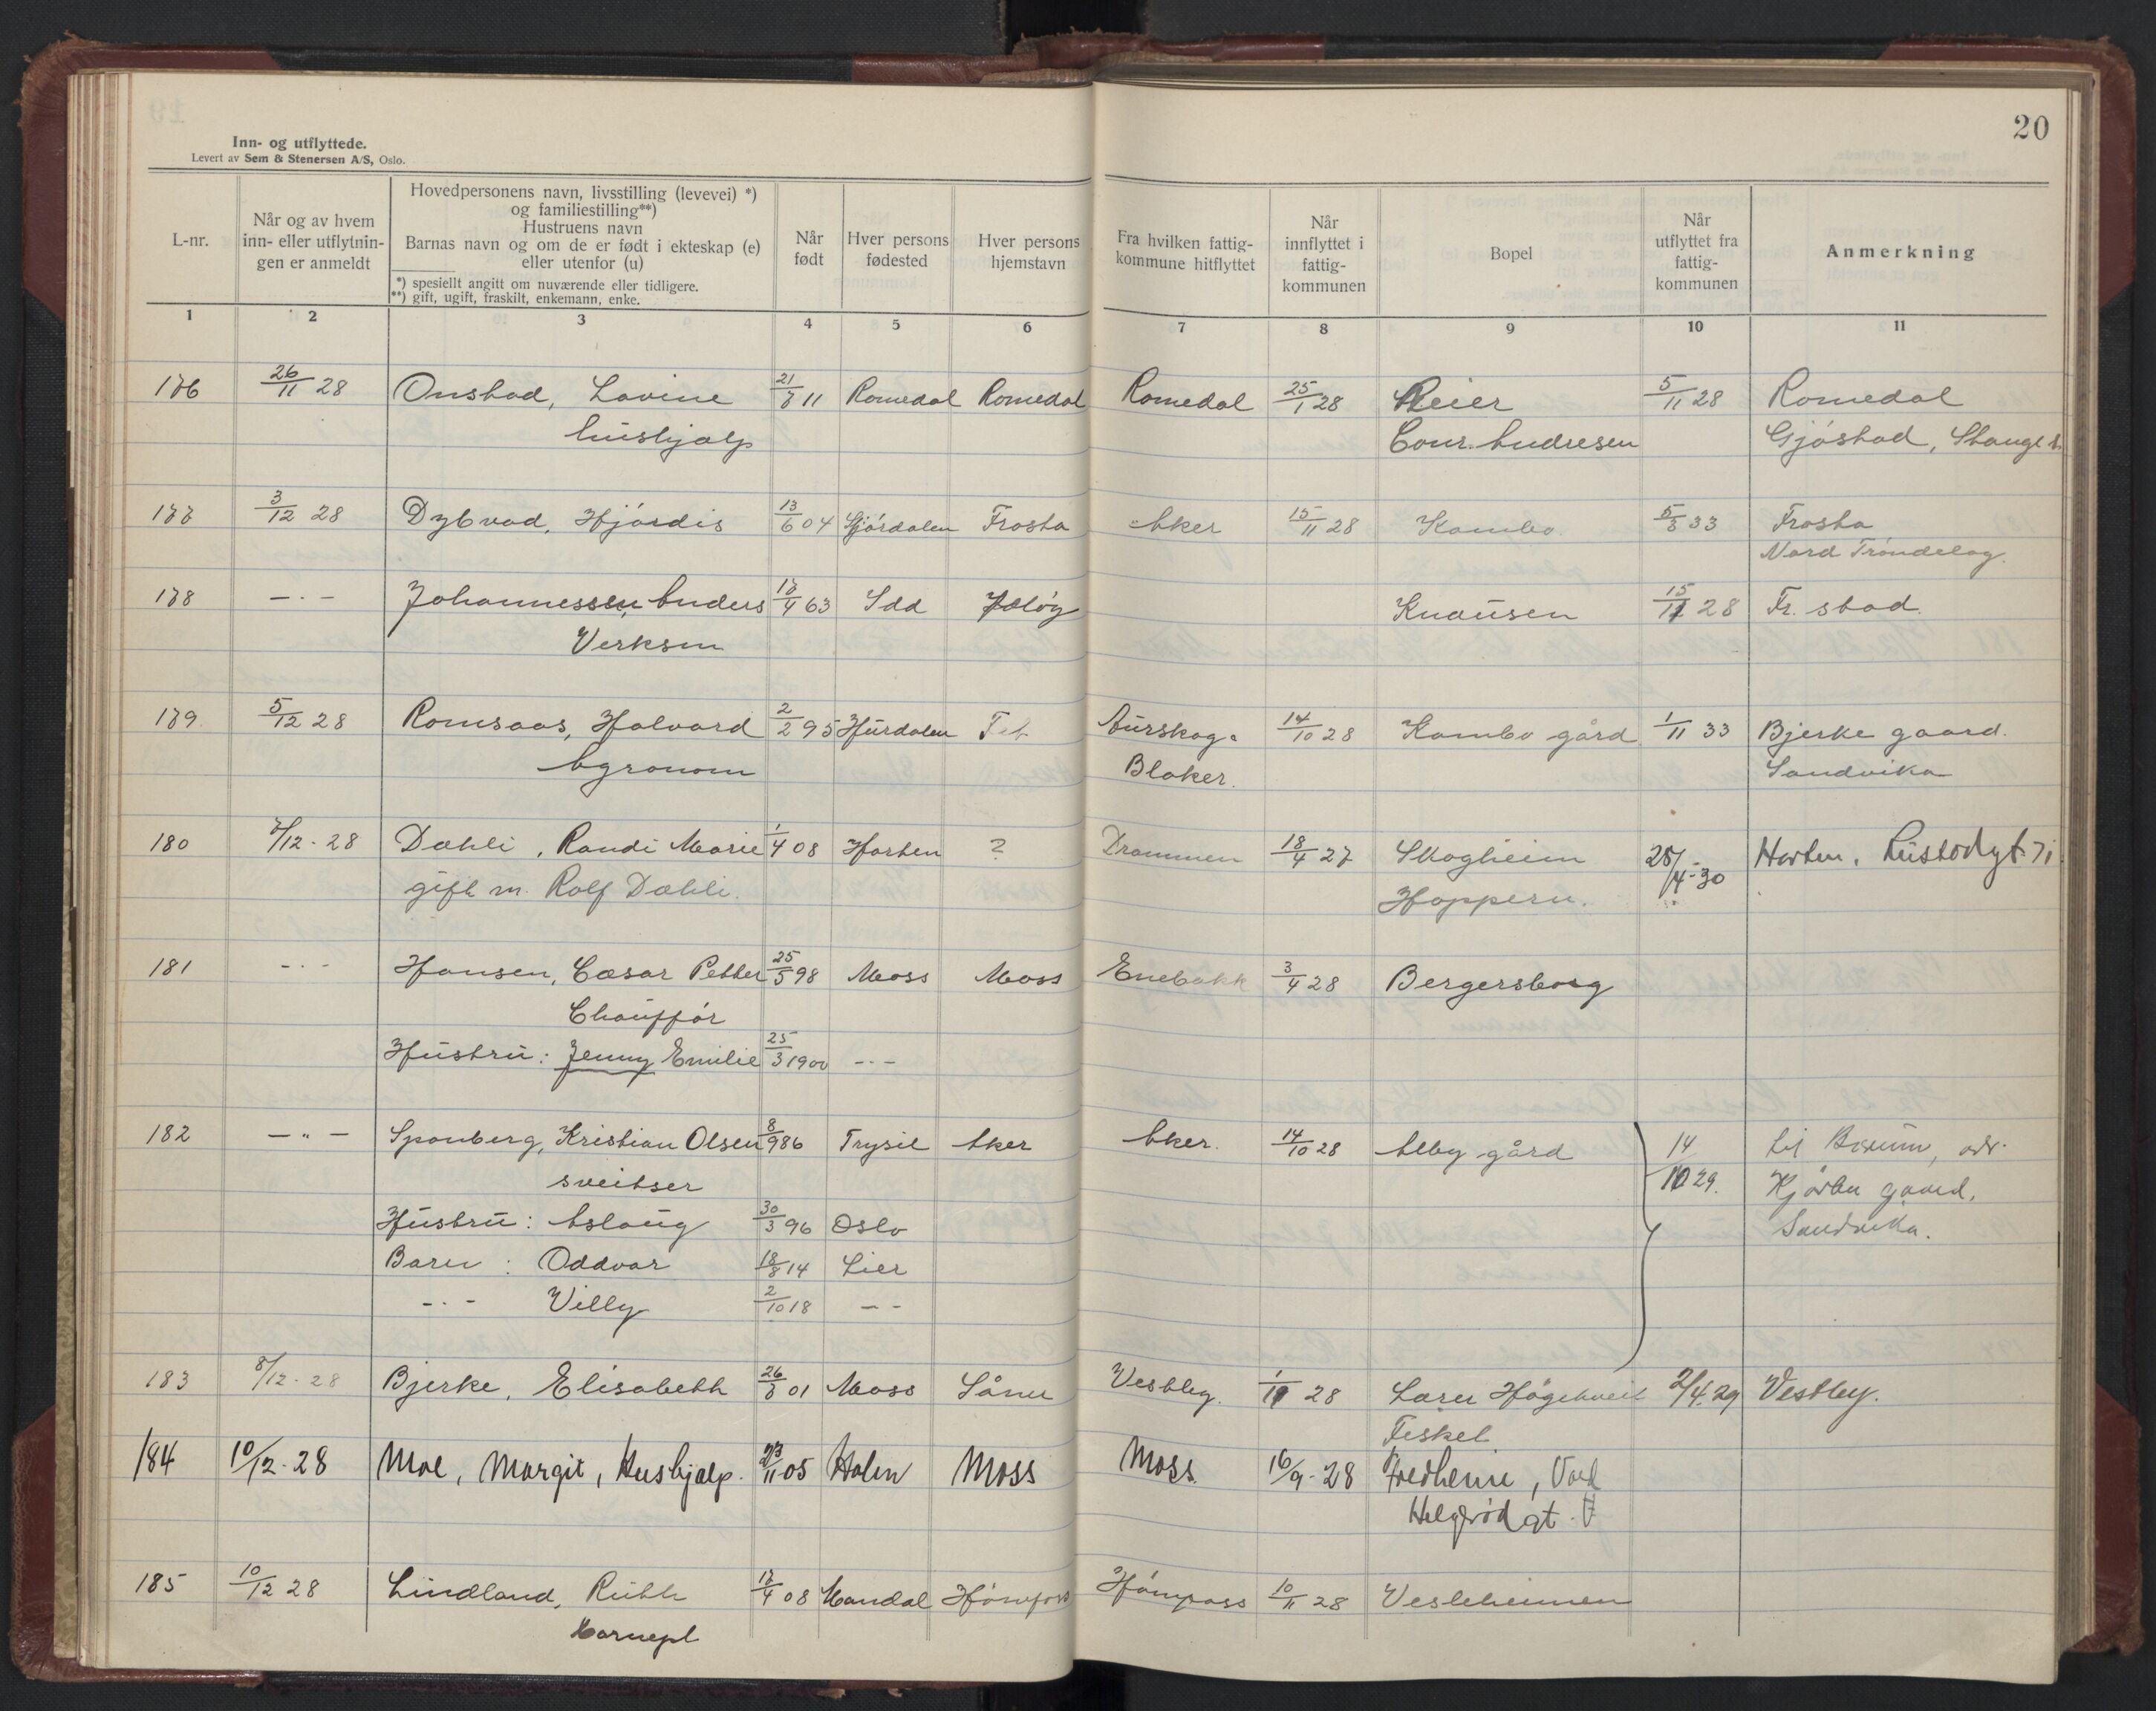 20
Inn- og utflyttede.
Levert av Sem & Stenersen A/S, Oslo.
L-nr.
Når og av hvem inn- eller utflytnin-gen er anmeldt
Hovedpersonens navn, livsstilling (levevei) *)
og familiestilling**)
Hustruens navn
Barnas navn og om de er født i ekteskap (e)
eller utenfor (u)
*) spesiellt angitt om nuværende eller tidligere.
**) gift, ugift, fraskilt, enkemann, enke.
Når født
Hver persons fødested
Hver persons hjemstavn
Fra hvilken fattig-kommune hitflyttet
Når innflyttet i fattig-kommunen
Bopel
Når utflyttet fra fattig-kommunen
Anmerkning
1 2 3 4 5 6 7 8 9 10 11
176 26/11 28 Onsbad, Lovine 21/7 11 Romedal Romedal Romedal 25/1 28 Reier 5/11 28 Romedal
hushjælp Conr. Andresen Gjøstad, Stange
177 3/12 28 Dybvad, Hjørdis 13/6 04 Frosta Aker 15/11 28 Kambo 5/8 33 Frosta
Nord Trøndelag.
178 — · — Johannessen, Anders 17/4 63 Idd Jeløy Knausen 15/11 28 Fr. stad.
Verksm
179 5/12 28 Romsaas, Halvard 2/2 95 Hurdalen Aurskog. 14/10 28 Kambo gård 1/11 33 Bjerke gaard.
Agronom Blaker. Sandvika
180 7/12 - 28 Dæhli, Randi Marie 1/4 08 Horten ? Drammen 18/4 27 Skogheim 28/4 - 30 Horten.
gift m. Rolf Dæhli. Hoppern.
181 - · - Hansen, Cæsar Petter 25/5 98 Moss Moss Enebakk 3/4 28 Bergersborg
Chauffør
Hustru: Jenny Emilie 25/3 1900 - · -
182 — " — Sponberg, Kristian Olsen 8/9 86 Trysil Aker Aker. 14/10 28 Alby gård 14/10 29. til Bærum, adr.
sveitser Kjørbo gaard,
Hustru: Aslaug 30/3 96 Oslo Sandvika.
Barn : Oddvar 18/8 14 Lier
- · - Villy 2/10 18 — -
183 8/12 - 28 Bjerke, Elisabeth 26/7 01 Moss Såner Vestby. 1/11 28 Lærer Høgetveit 2/4. 29 Vestby.
184 10/12 - 28 Moe, Margit, Hushjælp. 23/11 05 Halen Moss Moss. 16/9 - 28 Fredheim,
Helgerød gt.
185 10/12 28 Lindland, Ruth 17/4 08 Mandal Hønefoss Hønefoss 10/11 28 Vesleheimen
Barnepl